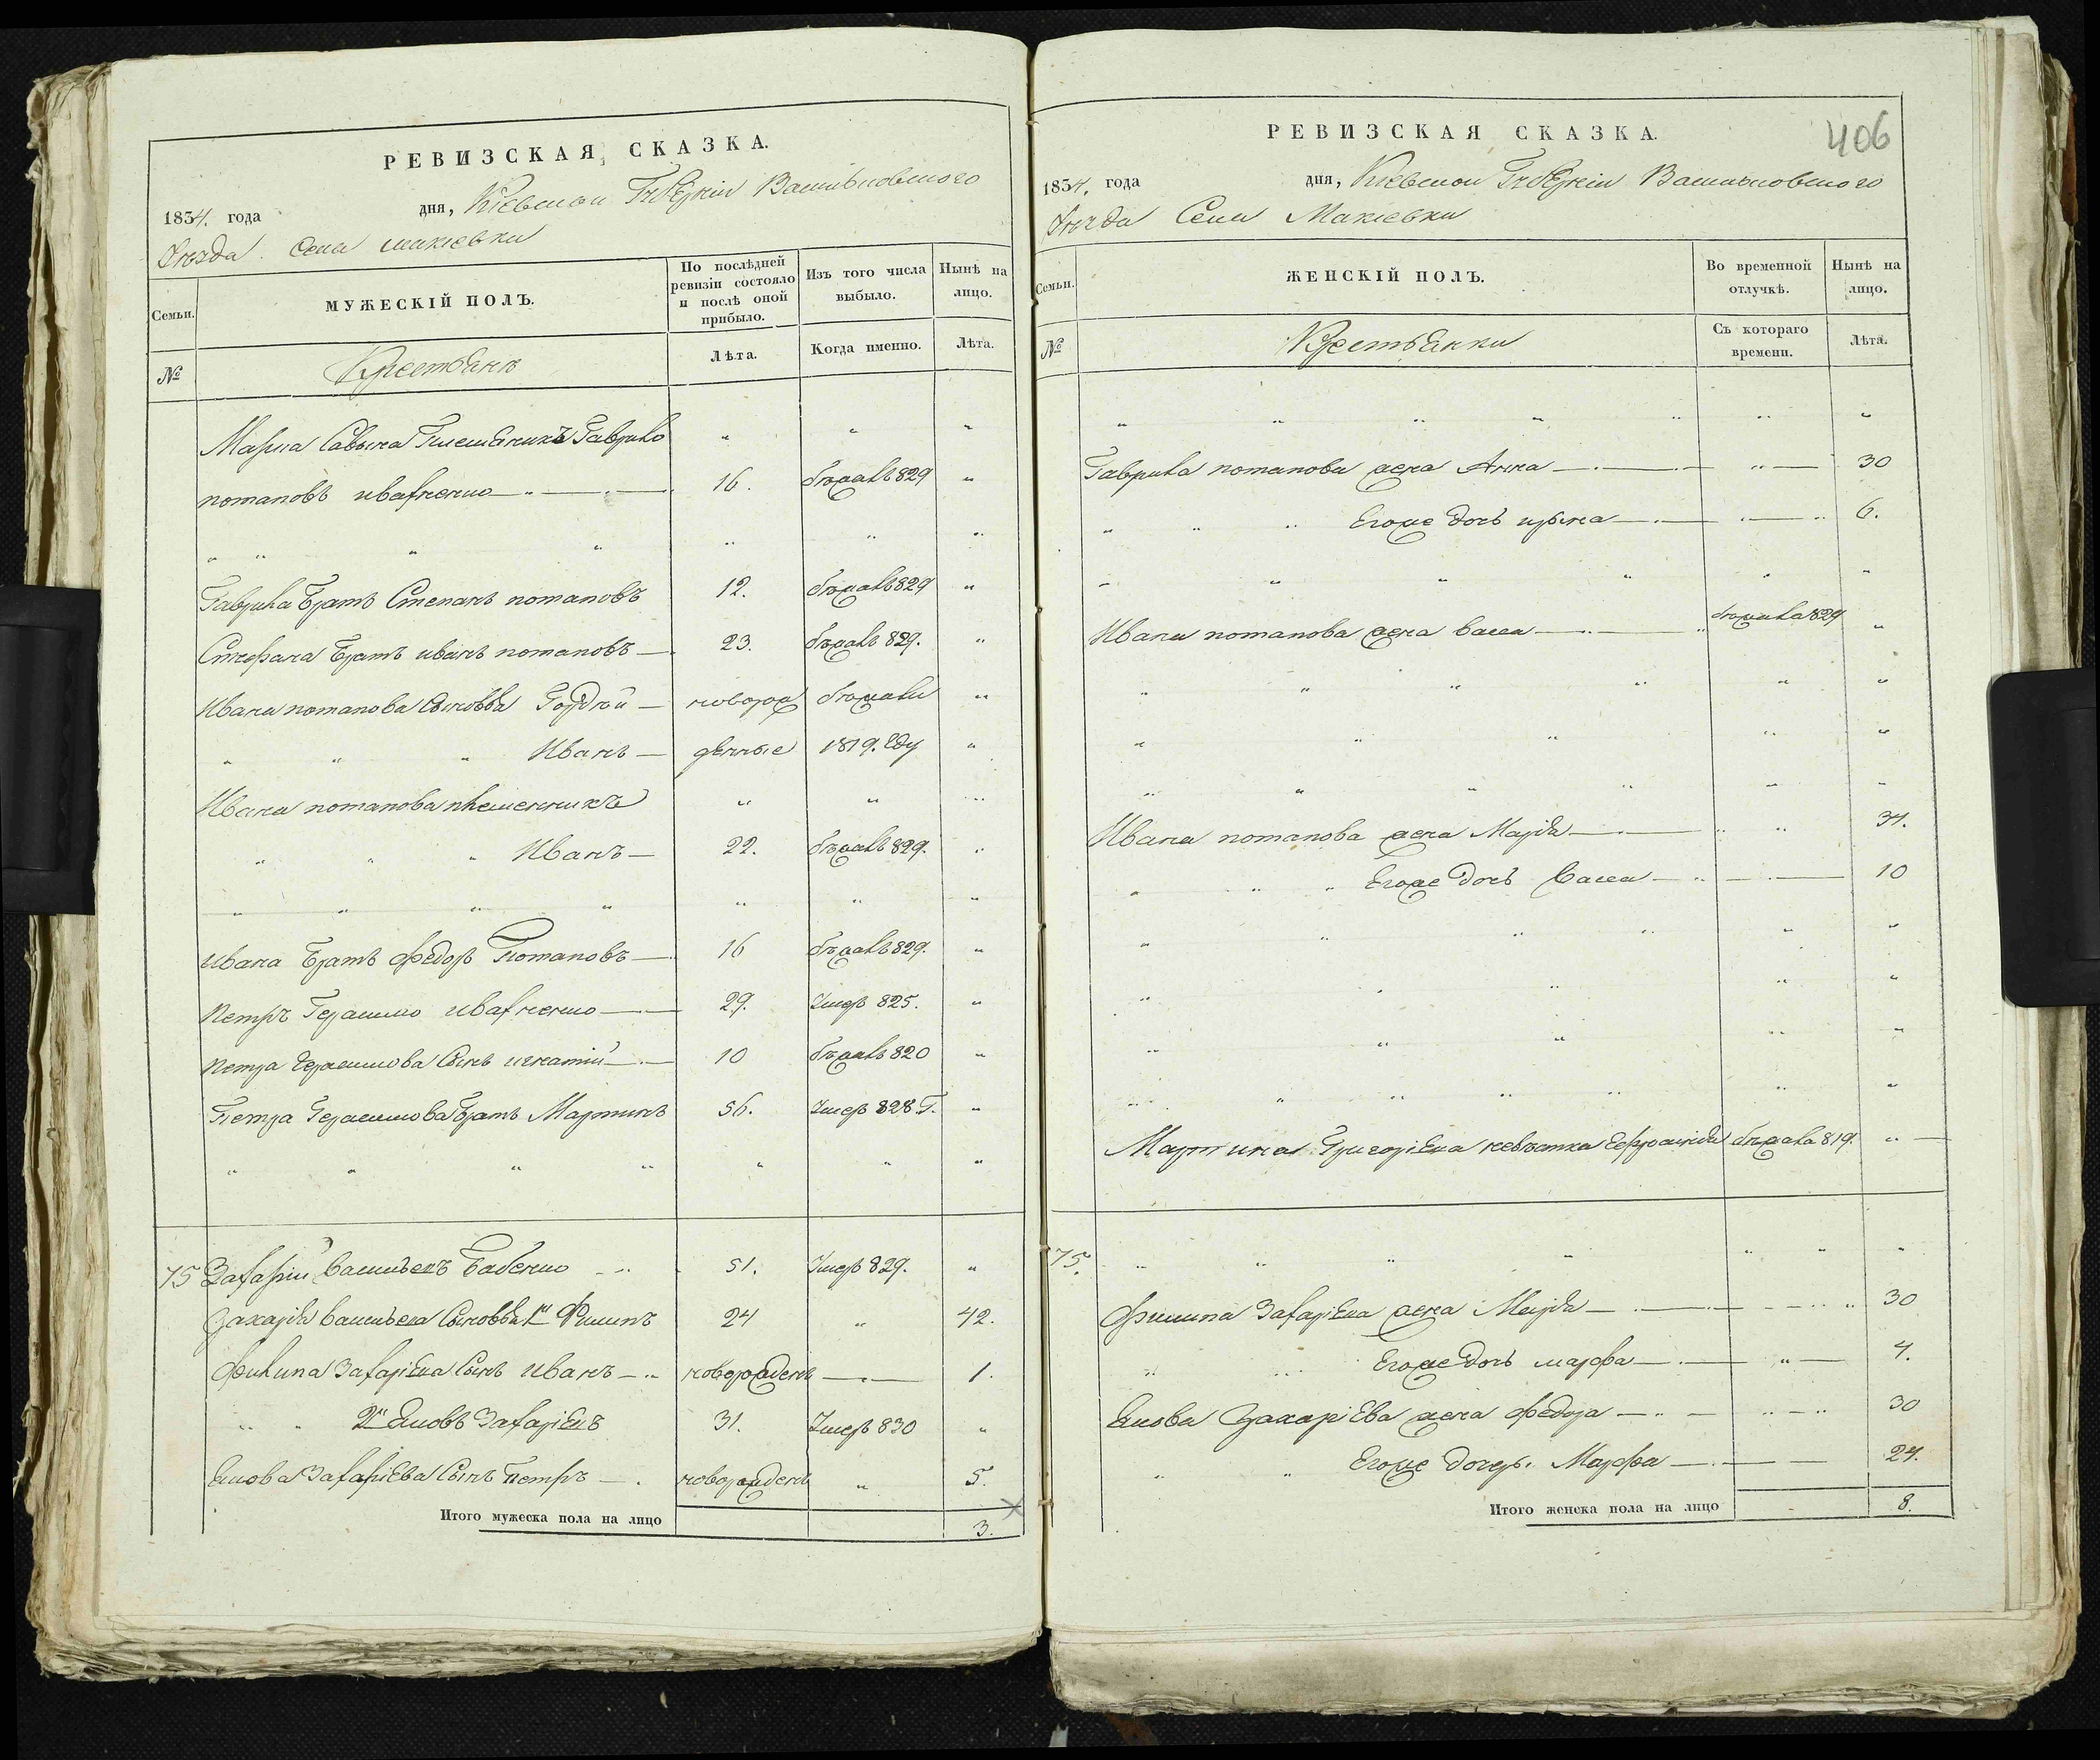 РЕВИЗСКАЯ СКАЗКА.
1834. года дня, Кіевской Губерніи Васильковского
Уезда Села макіевки
Семьи.
МУЖЕСКІЙ ПОЛЪ.
По послѣдней ревизіи состояло и послѣ оной прибыло.
Изъ того числа выбыло.
Нынѣ на лицо.
№
Крестьянъ
Лѣта.
Когда именно.
Лѣта.
Марка Савына Племянникъ Гаврило
потаповъ ивахненко 16. бѣжалъ 829
Гаврила Братъ Степанъ потаповъ 12. бѣжалъ 829
Стефана Братъ иванъ потаповъ 23. бѣжалъ 829.
Ивана потапова Сыновья Гордѣй новорож бѣжали
Иванъ денные 1819. году
Ивана потапова племенникъ
Иванъ 22. бѣжалъ 829.
ивана Братъ федоръ Потаповъ 16 бѣжалъ 829.
Петръ Герасимо ивахненко 29. Умеръ 825.
Петра Герасимова Сынъ игнатій 10 бѣжалъ 820
Петра Герасимова Братъ Мартинъ 56. Умеръ 828. Г.
75 Захарій Васильевъ Бабенко 51. Умеръ 829.
Захарія Васильева Сыновья 1й Филипъ 24 42.
Филипа Захаріева Сынъ Иванъ новорожденъ 1.
2й Яковъ Захаріевъ 31. Умеръ 830
Якова Захаріева Сынъ Петръ новорожденъ 5.
Итого мужеска пола на лицо 3.
РЕВИЗСКАЯ СКАЗКА.
406
1834. года дня, Кіевской Губерніи Васильковского
Уезда Села Макіевки
Семьи.
ЖЕНСКІЙ ПОЛЪ.
Во временной отлучкѣ.
Нынѣ на лицо.
№
Крестьянки
Съ котораго времени.
Лѣта.
Гаврила потапова жена Анна 30
Егоже дочь ирына 6.
Ивана потапова жена васса бѣжала 829
Ивана потапова жена Марія 34.
Егоже дочь Васса 10
Мартина Григоріева невѣстка Ефросинія бѣжала 819.
75.
Филипа Захаріева жена Марія 30
Егоже дочь марфа 4.
Якова Захаріева жена федора 30
Егоже дочерь Марфа 24.
Итого женска пола на лицо 8.